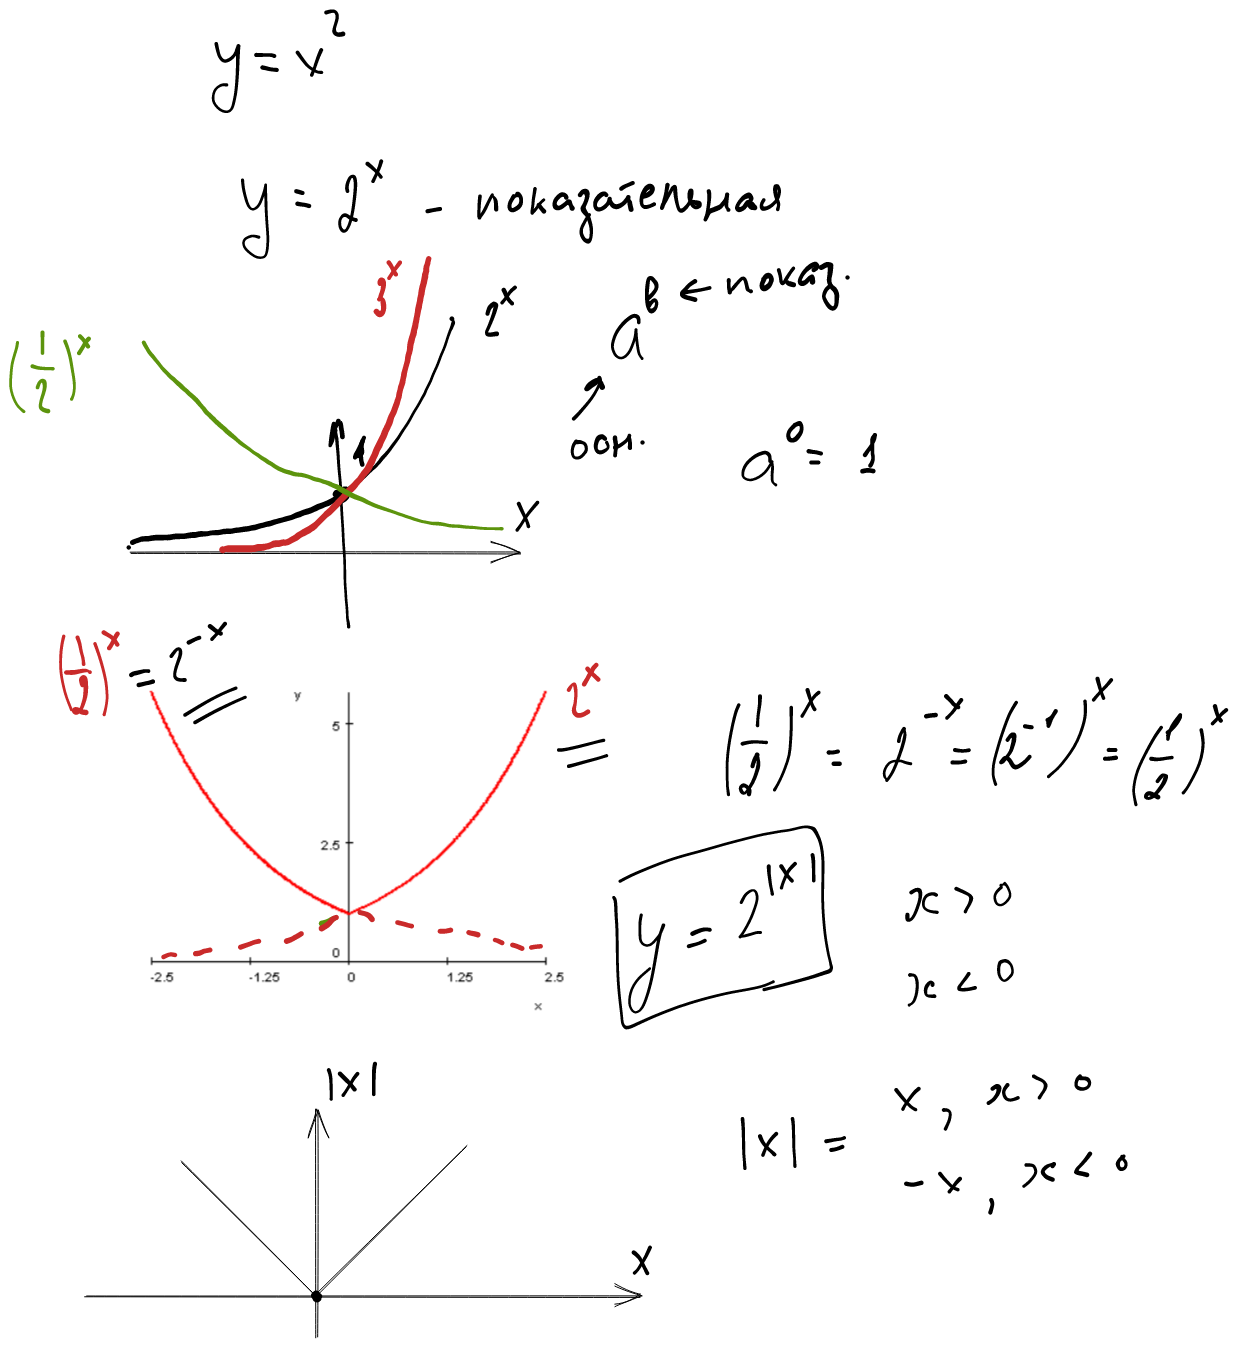 y = x²
y = 2ˣ - показательная
3ˣ
2ˣ
aᵇ ← показ.
(1/2)ˣ
осн.
1
a⁰ = 1
x
(1/2)ˣ = 2⁻ˣ
2ˣ
y
5
2.5
0
-2.5 -1.25 0 1.25 2.5
x
(1/2)ˣ = 2⁻ˣ = (2⁻¹)ˣ = (1/2)ˣ
y = 2^|x|
x > 0
x < 0
|x|
x
|x| =
x, x > 0
-x, x < 0